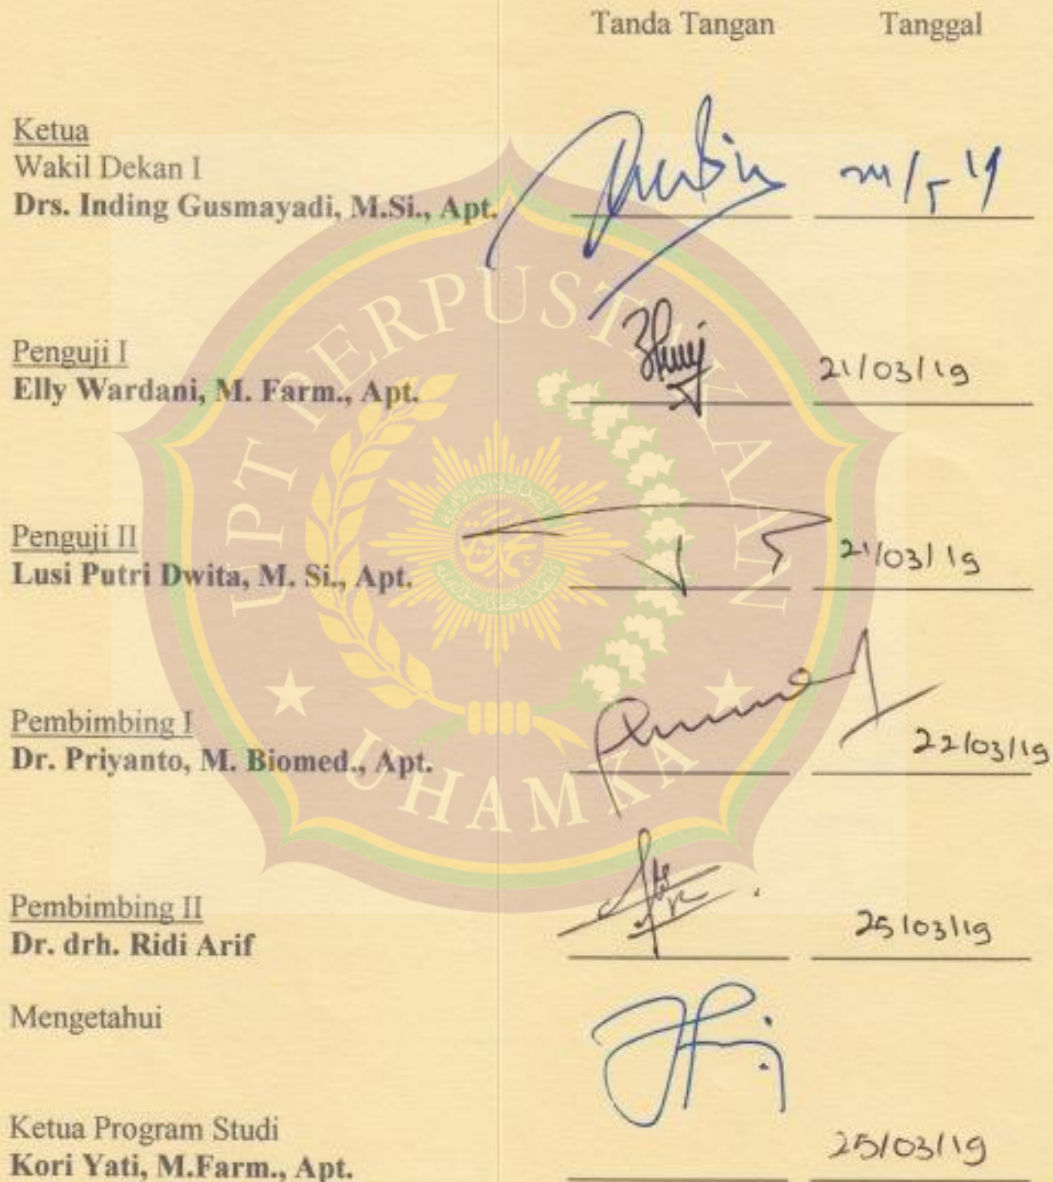 Tanda Tangan Tanggal
Ketua
Wakil Dekan I
Drs. Inding Gusmayadi, M.Si., Apt.
Penguji I
Elly Wardani, M. Farm., Apt. 21/03/19
Penguji II
Lusi Putri Dwita, M. Si., Apt. 21/03/19
Pembimbing I
Dr. Priyanto, M. Biomed., Apt. 22/03/19
Pembimbing II
Dr. drh. Ridi Arif 25/03/19
Mengetahui
Ketua Program Studi
Kori Yati, M.Farm., Apt. 25/03/19
UPT PERPUSTAKAAN
UHAMKA